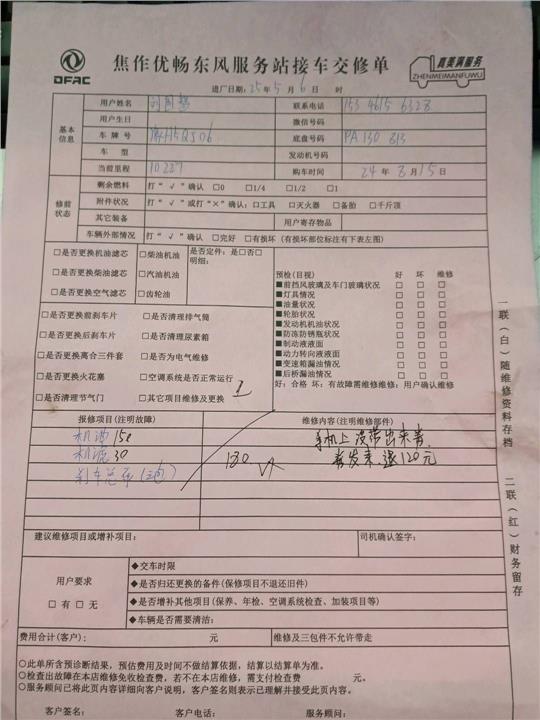 DFAC
焦作优畅东风服务站接车交修单
真美满服务
ZHENMEIMANFUWU
进厂日期:25年5月6日 时
基本信息
用户姓名
联系电话 153 4615 6328
用户生日
微信号码
车牌号
底盘号码 PA130 813
车型
发动机号码
当前里程 10237
购车时间 24年8月15日
修前状态
剩余燃料 打“√”确认 □0 □1/4 □1/2 □1
附件状况 打“√”或打“×”确认:□工具 □灭火器 □备胎 □千斤顶
其它装备
用户寄存物品
车辆外部情况 打“√”确认 □完好 □有损坏(有损坏部位标注有下表左图)
□是否更换机油滤芯 □柴油机油 是否定件:是□否□
明细:
□是否更换柴油滤芯 □汽油机油
□是否更换空气滤芯 □齿轮油
□是否更换前刹车片 □是否清理排气筒
□是否更换后刹车片 □是否清理尿素箱
□是否更换离合三件套 □是否为电气维修
□是否更换火花塞 □空调系统是否正常运行
□是否清理节气门 □其它项目维修及更换
预检(目视) 好 坏 维修
■前挡风玻璃及车门玻璃状况 □ □ □
■灯具情况 □ □ □
■油量状况 □ □ □
■轮胎状况 □ □ □
■发动机机油状况 □ □ □
■防冻防锈瓶状况 □ □ □
■制动液液面 □ □ □
■动力转向液液面 □ □ □
■变速箱漏油情况 □ □ □
■后桥漏油情况 □ □ □
好:合格 坏:有故障需维修维修:用户确认维修
报修项目(注明故障)
维修内容(注明维修部件)
机油 150
机滤 30
刹车总泵(三包)
180
手机上没带出来青
着发来退120元
建议维修项目或增补项目:
司机确认签字:
用户要求
□有□无
◆交车时限
◆是否归还更换的备件(保修项目不退还旧件)
◆是否增补其他项目(保养、年检、空调系统检查、加装项目等)
◆车辆是否需要清洁:
费用合计(客户): 元
维修及三包件不允许带走
○此单所含预诊断结果,预估费用及时间不做结算依据,结算以结算单为准。
○检查出故障在本店维修免收检查费,若不在本店维修,需支付检查费 元。
○服务顾问已将此页内容详细向客户说明,客户签名则表示已理解并接受此页内容。
客户签名: 客户电话: 服务顾问:
一联(白)随维修资料存档
二联(红)财务留存